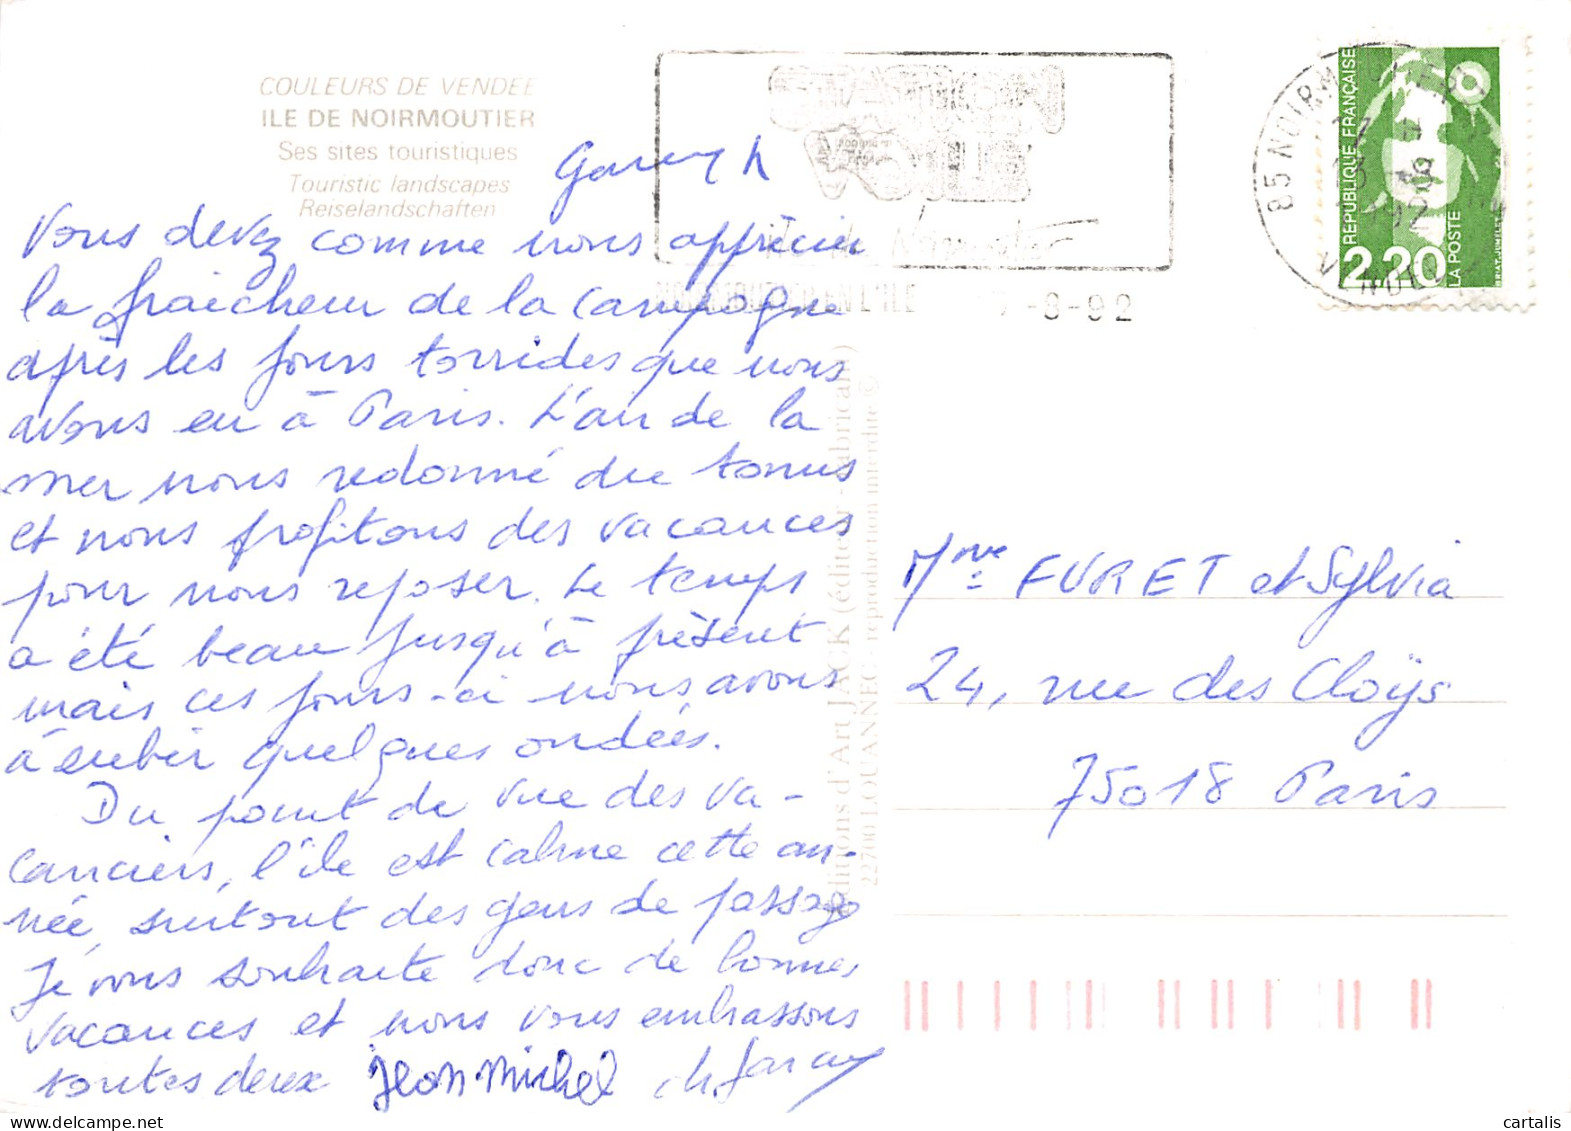 COULEURS DE VENDÉE
ILE DE NOIRMOUTIER
Ses sites touristiques
Touristic landscapes
Reiselandschaften
Vous devez comme nous apprécier
la fraicheur de la campagne
après les jours torrides que nous
avons eu à Paris. L'air de la
mer nous redonné du tonus
et nous profitons des vacances
pour nous reposer. Le temps
a été beau jusqu'à présent
mais ces jours-ci nous avons
à subir quelques ondées.
Du point de vue des va-
canciers, l'île est calme cette an-
née, surtout des gens de passage
Je vous souhaite donc de bonnes
vacances et nous vous embrassons
toutes deux Jean-Michel
Editions d'Art JACK (éditeur - fabricant)
22700 LOUANNEC - reproduction interdite ©
NOIRMOUTIER EN L'ILE -8-92
85 NOIRMOUTIER
VENDEE
RÉPUBLIQUE FRANÇAISE
2,20
LA POSTE
Mme FURET et Sylvia
24, rue des Cloÿs
75018 Paris
cartalis